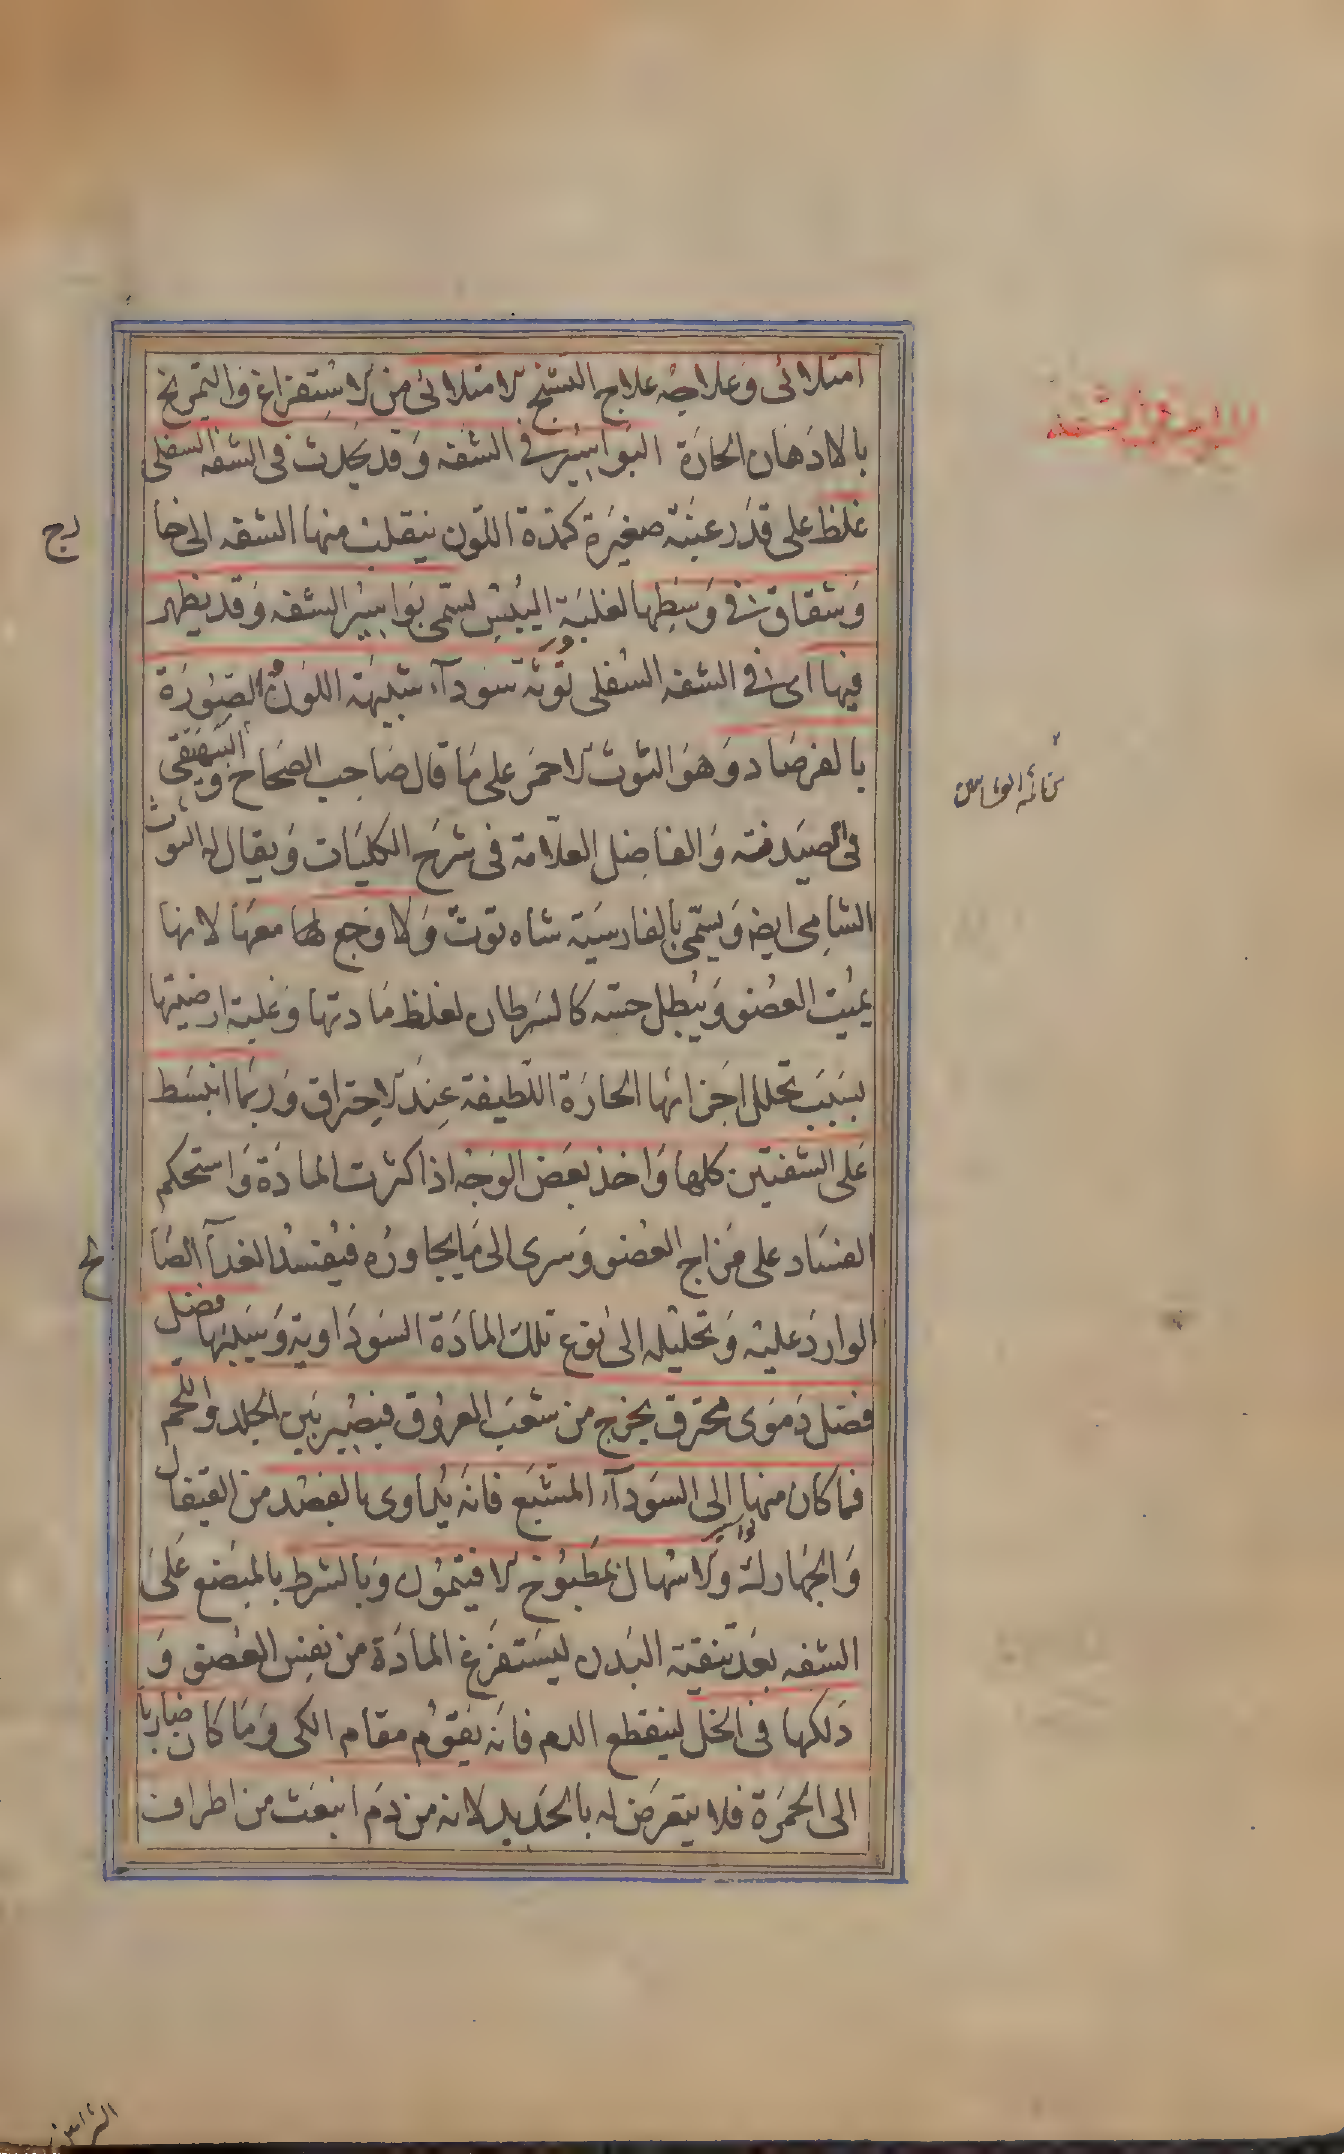 امتلائى وعلاجه علاج التشنج الامتلائى من الاستفراغ والتمريخ
بالادهان الحارة البواسير فى الشفه وقد يحدث فى الشفه السفلى
غلظ على قدر عنبة صغيرة كمدة اللون ينقلب منها الشفه الى خا
رج
وشقاق فى وسطها لغلبة اليبس يسمى بواسير الشفه وقد يظهر
فيها اى فى الشفه السفلى توثة سودآء شبيهة اللون والصورة
بالفرصاد وهو التوث الاحمر على ما قال صاحب الصحاح والبيهقى
فى الصيدنه والفاضل العلامة فى شرح الكليات ويقال له التوث
الشامى ايضا ويسمى بالفارسية شاه توث ولا وجع لها معها لانها
يميت العضو ويبطل حسه كالسرطان لغلظ مادتها وغلبة ارضيتها
بسبب تحلل اجزائها الحارة اللطيفة عند الاحتراق وربما انبسط
على الشفتين كلها واخذ بعض الوجه اذا كثرت المادة واستحكم
الفساد على مزاج العضو وسرى الى ما يجاوره فيفسد الغدآ الصا
لح
الوارد عليه وتحليله الى نوع تلك المادة السوداوية وسببها فضل
فضل دموى محترق يخرج من شعب العروق فيصير بين الجلد واللحم
فما كان منها الى السودآء المشبع فانه يداوى بالفصد من القيفال
والجهارك والاسهال بمطبوخ الافتيمون وبالشرط بالمبضع على
الشفه بعد تنقية البدن ليستفرغ المادة من نفس العضو و
دلكها فى الخل لينقطع الدم فانه يقوم مقام الكى وما كان ضاربا
الى الحمرة فلا يتعرض له بالحديد لانه من دم انبعث من اطراف